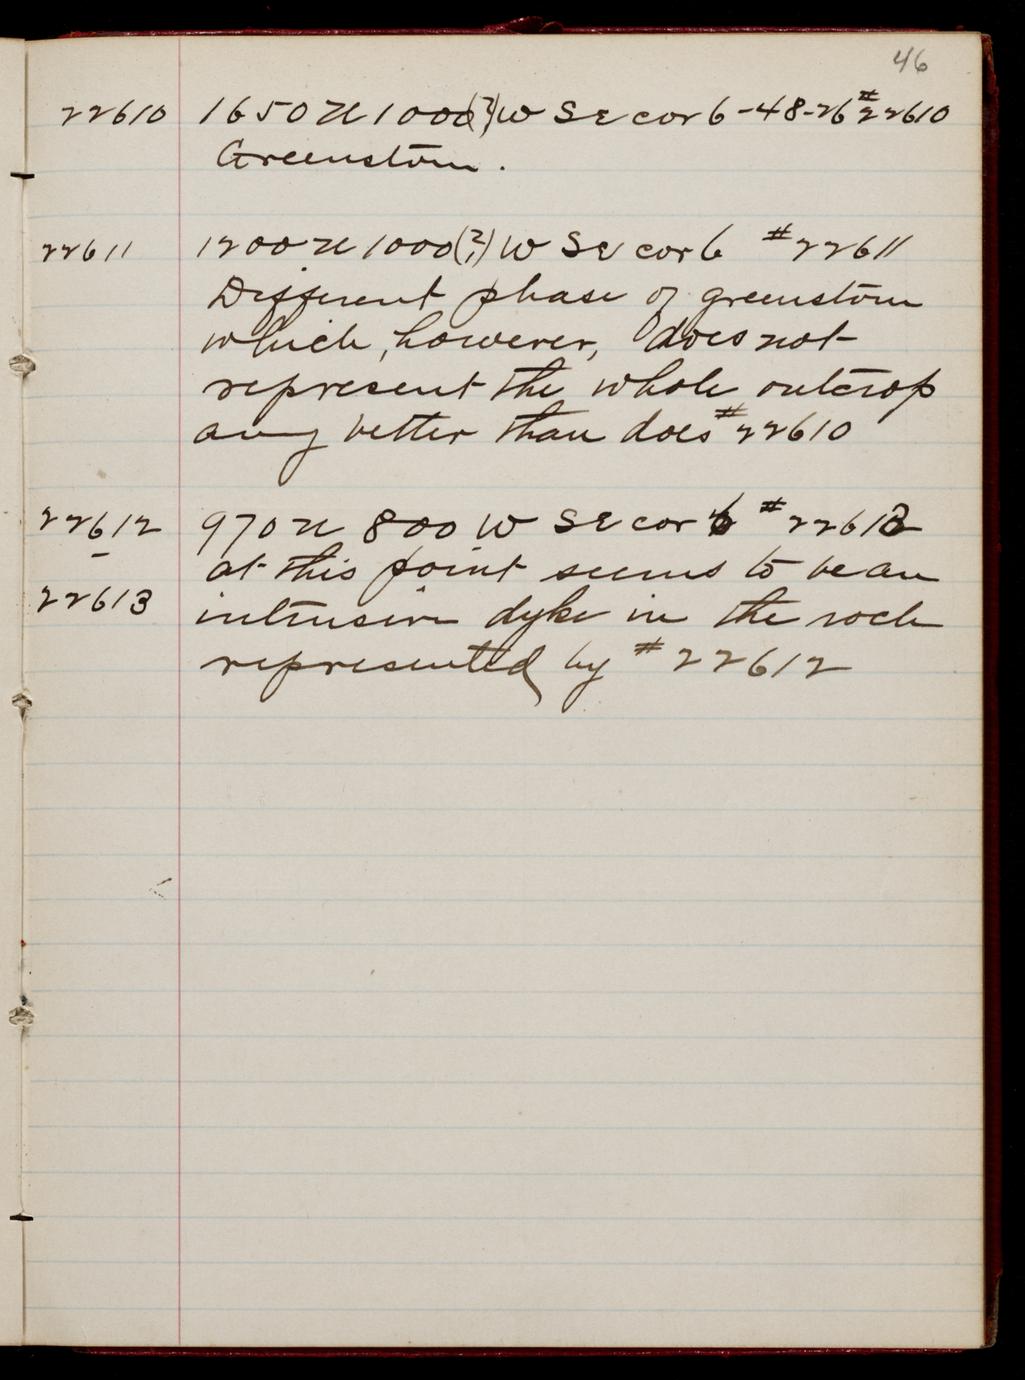 46
22610 1650 N 1000(?) W SE cor 6-48-26 #22610
Greenstone.
22611 1200 N 1000(?) W SE cor 6 #22611
Different phase of greenstone
which, however, does not
represent the whole outcrop
any better than does #22610
22612 970 N 800 W SE cor 6 #22613
- at this point seems to be an
22613 intrusive dyke in the rock
represented by #22612